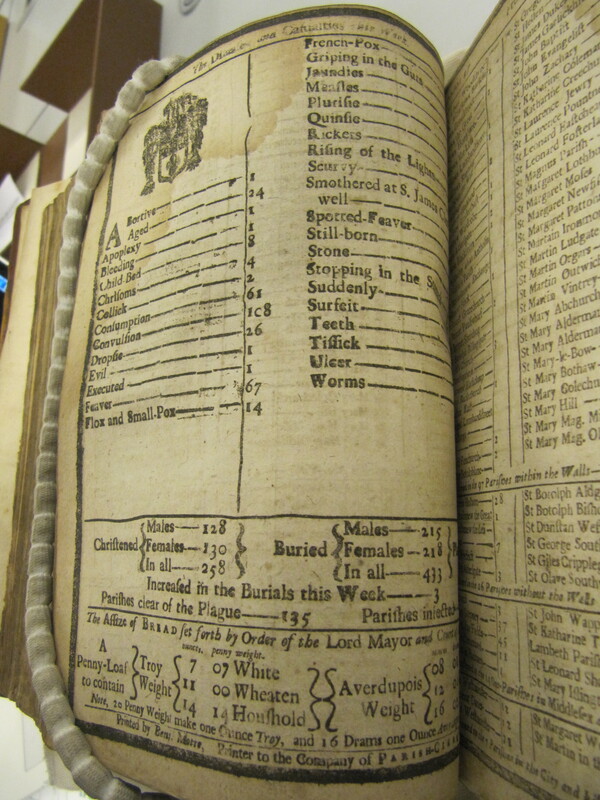 The Diseases and Casualties this Week.
Abortive 1
Aged 24
Apoplexy 1
Bleeding 1
Child-Bed 8
Chrisoms 4
Collick 2
Consumption 61
Convulsion 1c8
Dropsie 26
Evil 1
Executed 1
Feaver 67
Flox and Small-Pox 14
French-Pox
Griping in the Guts
Jaundies
Measles
Plurisie
Quinsie
Rickets
Rising of the Lights
Scurvy
Smothered at S. James
well
Spotted-Feaver
Still-born
Stone
Stopping in the
Suddenly
Surfeit
Teeth
Tissick
Ulcer
Worms
Christened { Males 128 Females 130 In all 258 }
Buried { Males 215 Females 218 In all 433 }
Increased in the Burials this Week 3
Parishes clear of the Plague 135 Parishes infected
The Assize of BREAD set forth by Order of the Lord Mayor and Court
ounces. penny weight.
A Penny-Loaf to contain { Troy Weight { 7 07 White
11 00 Wheaten
14 14 Houshold } Averdupois Weight { 08
12
16
Note, 20 Penny Weight make one Ounce Troy, and 16 Drams one Ounce
Printed by Benj. Motte, Printer to the Company of PARISH-
St John Zachary
St Katharine Coleman
St Katharine Creechurch
St Laurence Jewry
St Laurence Pountney
St Leonard Eastcheap
St Leonard Fosterlane
St Magnus Parish
St Margaret Lothbury
St Margaret Moses
St Margaret Newfish
St Margaret Pattons
St Martin Ironmonger
St Martin Ludgate
St Martin Orgars
St Martin Outwich
St Martin Vintrey
St Mary Abchurch
St Mary Alderman
St Mary Alderma
St Mary-le-Bow
St Mary Bothaw
St Mary Colechur
St Mary Hill
St Mary Mag. M
St Mary Mag. Ol
97 Parishes within the Walls
St Botolph Aldg
St Botolph Bisho
St Dunstan West
St George South
St Giles Cripple
St Olave Southw
16 Parishes without the Walls
St John Wapp
St Katharine T
Lambeth Parish
St Leonard Sh
St Mary Isling
Parishes in Middlesex
St Margaret W
St Martin in th
Parishes in the City and